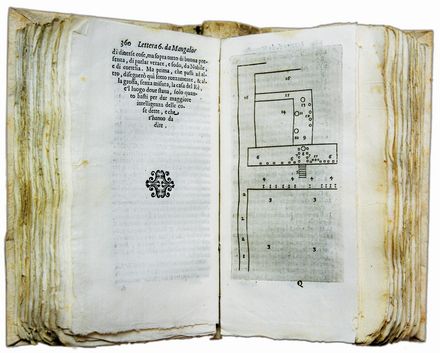 360 Lettera 6. da Mangalor
di diverse cose, ma sopra tutto di buona pre-
senza, di parlar verace, e sodo, da Nobile,
e di cortesia. Ma prima, che passi ad al-
tro, disegnerò quì sotto rozzamente, & al-
la grossa, senza misure, la casa del Rè,
e'l luogo doue staua, solo quan-
to basti per dar maggiore
intelligenza delle co-
se dette, e che
s'hanno da
dire.
16
15
14
17
6 6
9
4 4 4 4
3 3
3 3
Q